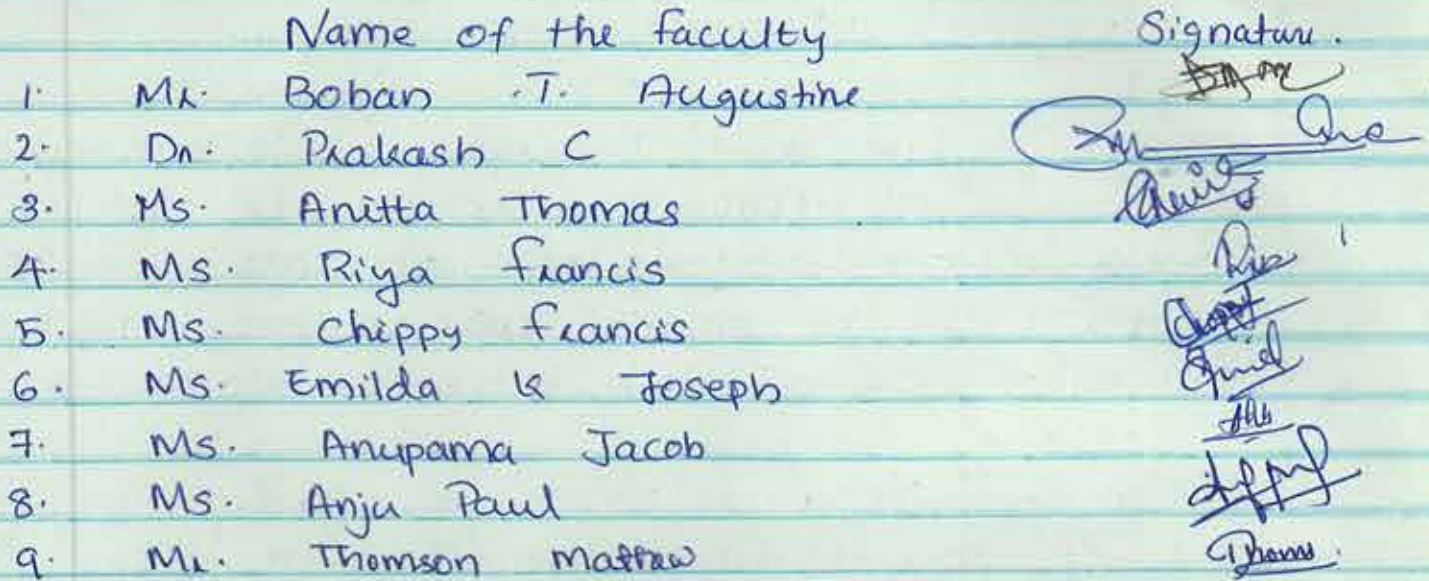 Name of the faculty Signature.
1. Mr. Boban .T. Augustine
2. Dr. Prakash C
3. Ms. Anitta Thomas
4. Ms. Riya francis
5. Ms. Chippy francis
6. Ms. Emilda K Joseph
7. Ms. Anupama Jacob
8. Ms. Anju Paul
9. Mr. Thomson Mathew